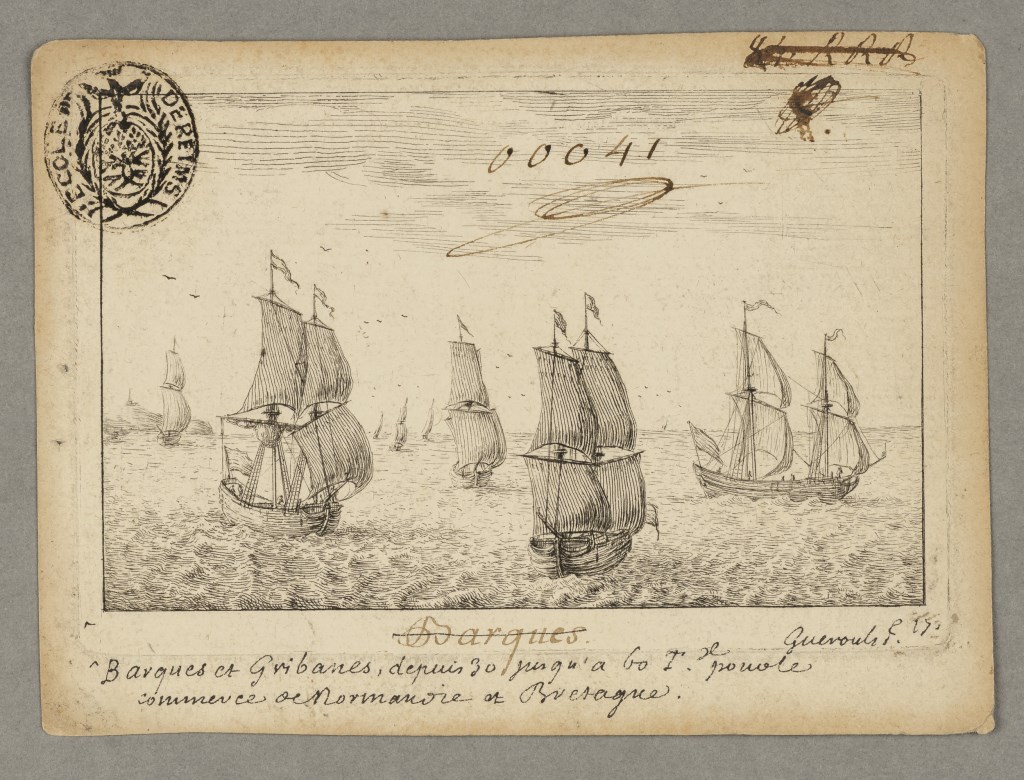 ECOLE DEREIMS
00041
Barques.
Gueroult f.
Barques et Gribanes, depuis 30 jusqu'a 60 T.
commerce de Normandie et Bretagne.